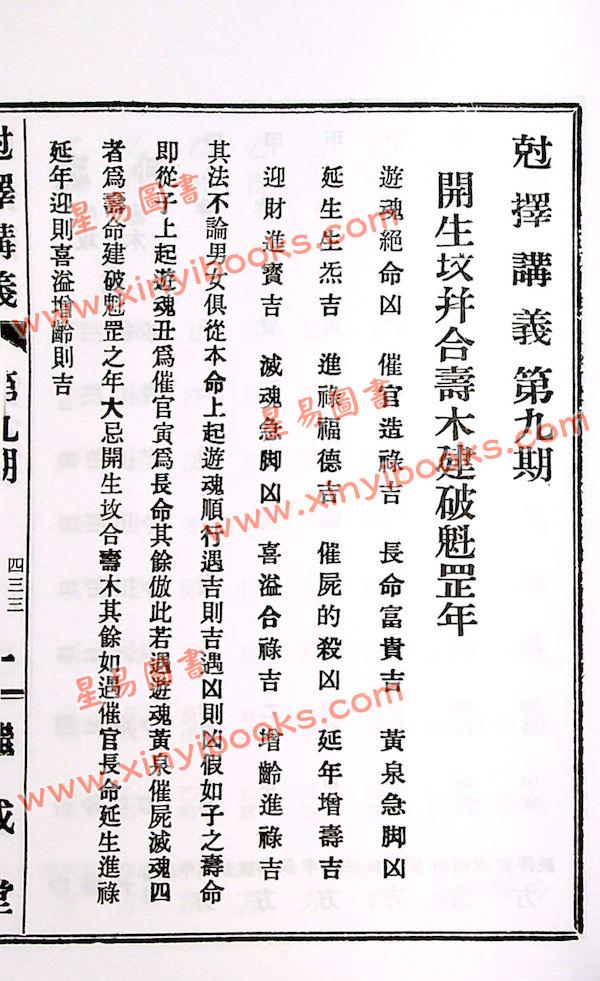 尅擇講義第九期
開生坟并合壽木建破魁罡年
遊魂絕命凶 催官造祿吉 長命富貴吉 黃泉急脚凶
延生生炁吉 進祿福德吉 催屍的殺凶 延年增壽吉
迎財進寶吉 滅魂急脚凶 喜溢合祿吉 增齡進祿吉
其法不論男女俱從本命上起遊魂順行遇吉則吉遇凶則凶假如子之壽命
即從子上起遊魂丑爲催官寅爲長命其餘倣此若遇遊魂黃泉催屍滅魂四
者爲壽命建破魁罡之年大忌開生坟合壽木其餘如遇催官長命延生進祿
延年迎財喜溢增齡則吉
尅擇講義 第九期 四三三 二 繼成堂
星易圖書
www.xinyibooks.com
星易圖書
www.xinyibooks.com
星易圖書
www.xinyibooks.com